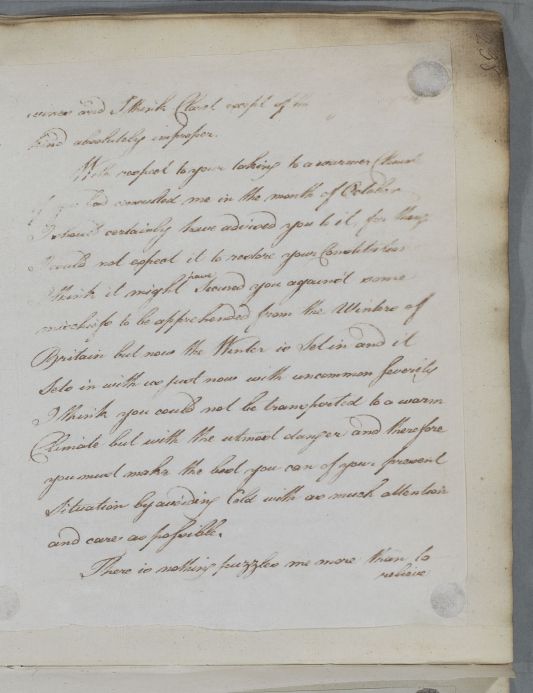 and I think Claret except of the
kind absolutely improper.
With respect to your taking to a warmer Climate
if you had consulted me in the month of October
I should certainly have advised you to it, for tho
I could not expect it to restore your Constitution
I think it might have Secured you against some
mischiefs to be apprehended from the Winters of
Britain but now the Winter is Set in and it
Sets in with us just now with uncommon Severity
I think you could not be transported to a warm
Climate but with the utmost danger and therefore
you must make the best you can of your present
Situation by avoiding Cold with as much attention
and care as possible.
There is nothing puzzles me more than to
relieve